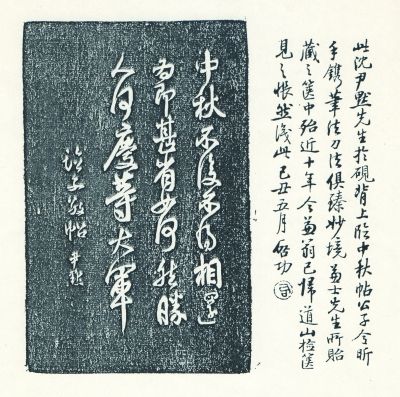 此沈尹默先生於硯背上臨中秋帖公子令昕
手鐫筆法刀法俱臻妙境兼士先生所貽
藏之篋中殆近十年今兼翁已歸道山檢篋
見之悵然識此己丑五月启功
中秋不復不得相還
為即甚省如何然勝
人何慶等大軍
臨子敬帖 尹默